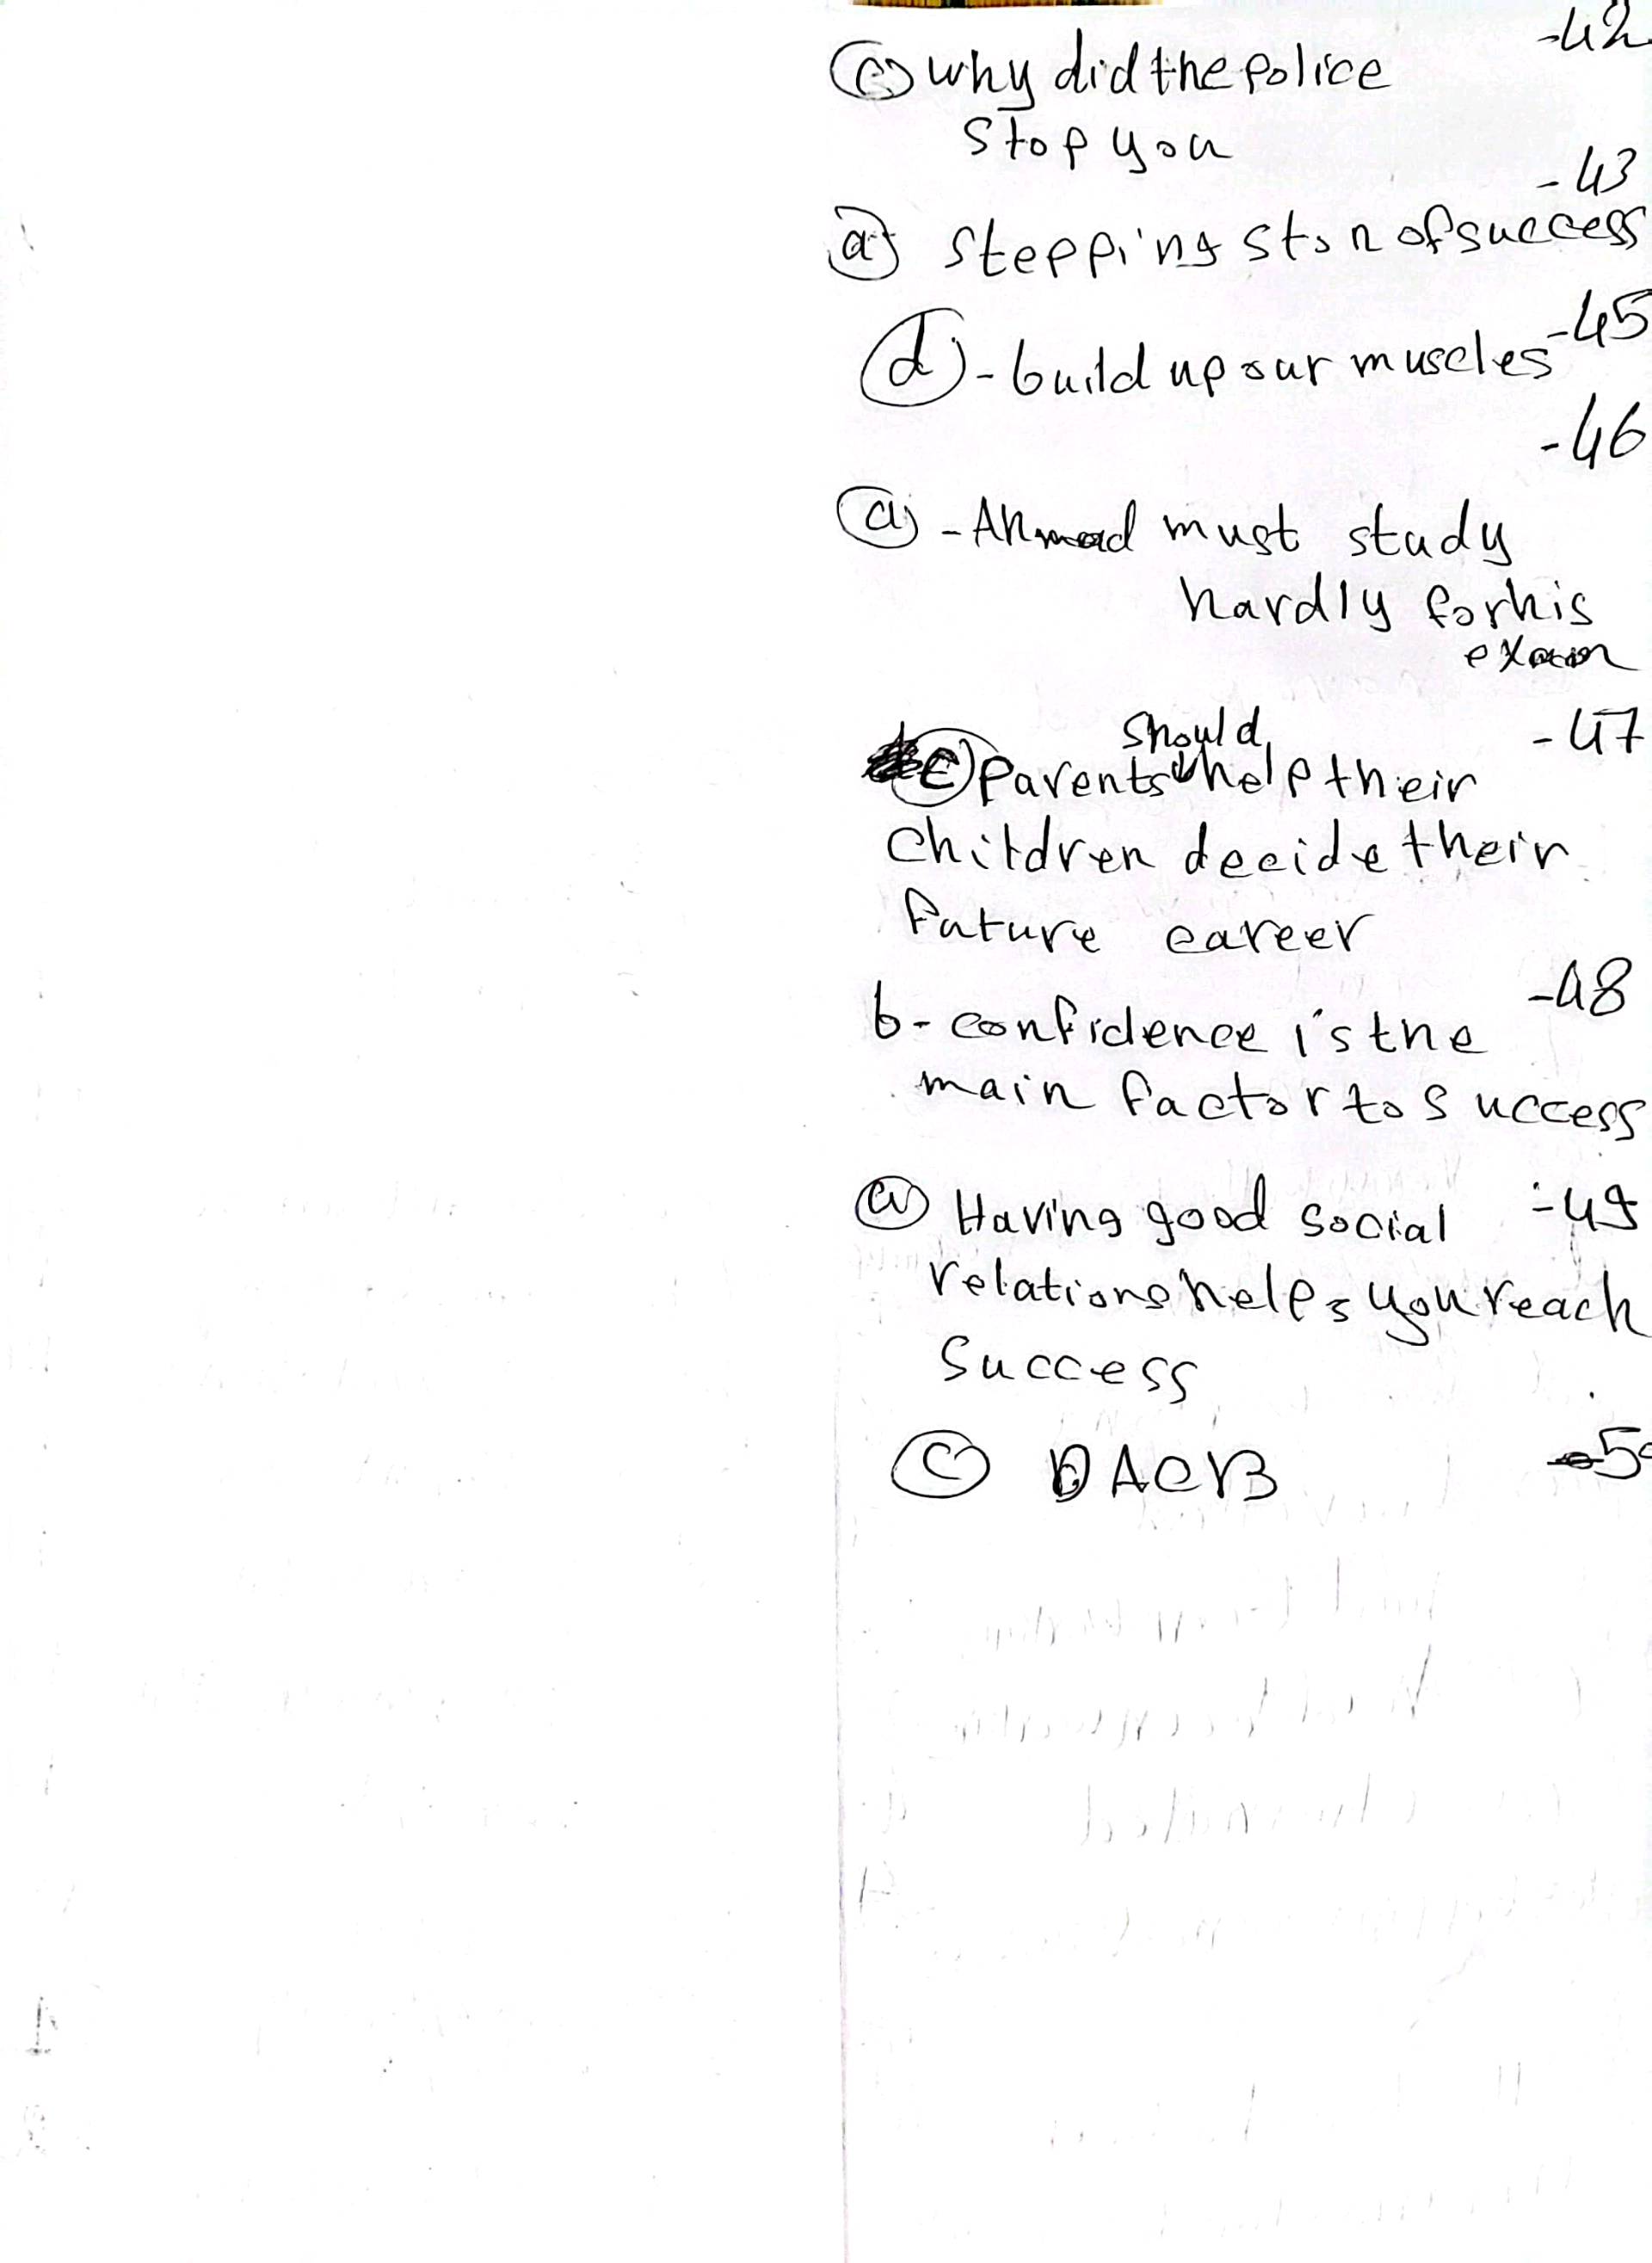 -42
(c) why did the police
stop you
-43
(a) stepping ston of success
-45
(d) - build up our muscles
-46
(a) - Ahmad must study
hardly for his
exam
-47
should
(c) parents help their
children decide their
future career
-48
b- confidence is the
main factor to success
-49
(a) Having good social
relations helps you reach
success
-50
(c) DACB